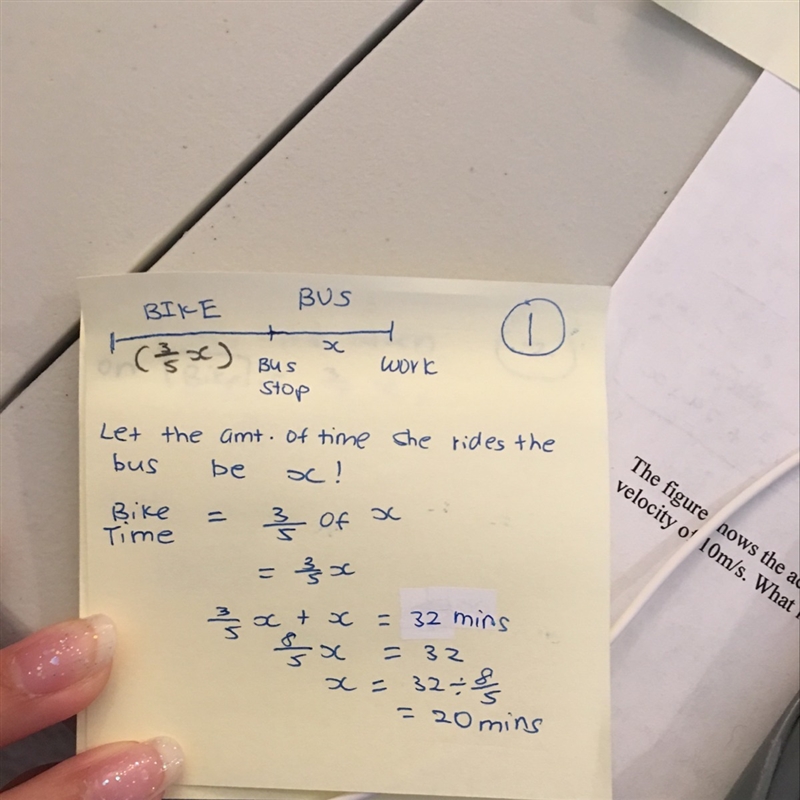 BIKE BUS
1
(3/5 x) x
Bus Stop
Work
Let the amt. of time she rides the
bus be x!
Bike Time = 3/5 of x
= 3/5 x
3/5 x + x = 32 mins
8/5 x = 32
x = 32 ÷ 8/5
= 20 mins
The figure
velocity of 10m/s. What